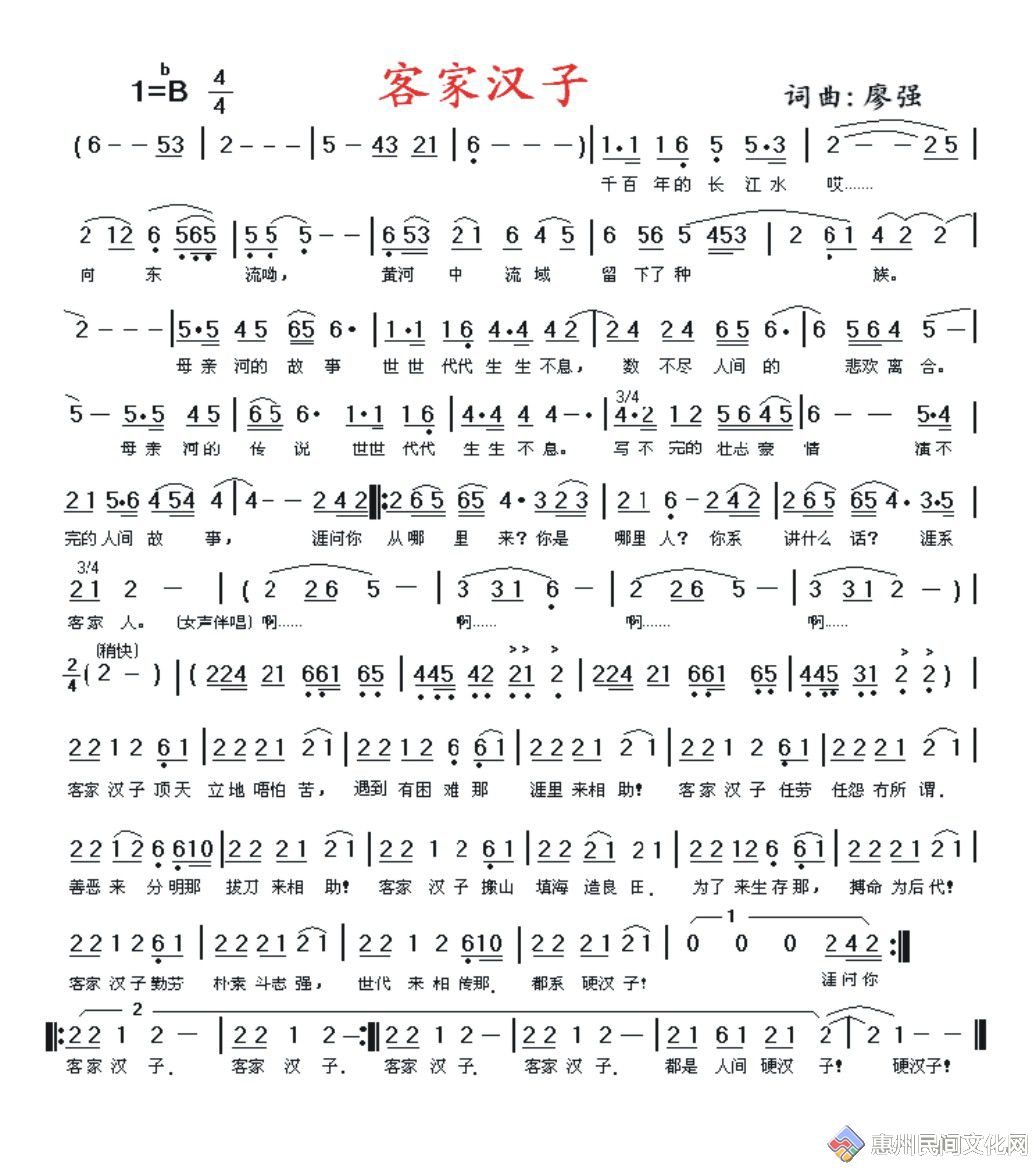 客家汉子
1=♭B 4/4
词曲:廖强
(6 - - 53 | 2 - - - | 5 - 43 21 | 6 - - - )| 1·1 16 5 5·3 | 2 - - 25 |
千百年的长江水 哎……
2 12 6 565 | 55 5 - - | 6 53 21 6 4 5 | 6 56 5 453 | 2 61 4 2 2 |
向东流呦，黄河中流域留下了种族。
2 - - - | 5·5 45 65 6· | 1·1 16 4·4 42 | 24 24 65 6· | 6 564 5 - |
母亲河的故事世世代代生生不息，数不尽人间的悲欢离合。
5 - 5·5 45 | 65 6· 1·1 16 | 4·4 4 4 - · | 3/4 4·2 12 5645 | 6 - - 5·4 |
母亲河的传说世世代代生生不息。写不完的壮志豪情演不
21 5·6 4 54 4 | 4 - - 242 |: 265 65 4· 323 | 21 6 - 242 | 265 65 4· 3·5 |
完的人间故事，涯问你从哪里来？你是哪里人？你系讲什么话？涯系
3/4 21 2 - | ( 2 26 5 - | 3 31 6 - | 2 26 5 - | 3 31 2 - ) |
客家人。(女声伴唱)啊…… 啊…… 啊…… 啊……
2/4 (稍快) ( 2 - ) | ( 224 21 661 65 | 445 42 21 2 | 224 21 661 65 | 445 31 2 2 ) |
22 1 2 61 | 22 21 21 | 22 12 6 61 | 22 21 21 | 22 1 2 61 | 22 21 21 |
客家汉子顶天立地唔怕苦，遇到有困难那涯里来相助！客家汉子任劳任怨冇所谓.
22 12 6 610 | 22 21 21 | 22 1 2 61 | 22 21 21 | 22 12 6 61 | 22 21 21 |
善恶来分明那拔刀来相助！客家汉子搬山填海造良田.为了来生存那，搏命为后代！
22 1 2 61 | 22 21 21 | 22 1 2 610 | 22 21 21 | 1 0 0 0 242 :|
客家汉子勤劳朴素斗志强，世代来相传那.都系硬汉子！涯问你
2 |: 22 1 2 - | 22 1 2 - :| 22 1 2 - | 22 1 2 - | 21 61 21 2 | 2 21 - - |
客家汉子.客家汉子.客家汉子.客家汉子.都是人间硬汉子！硬汉子！
惠州民间文化网